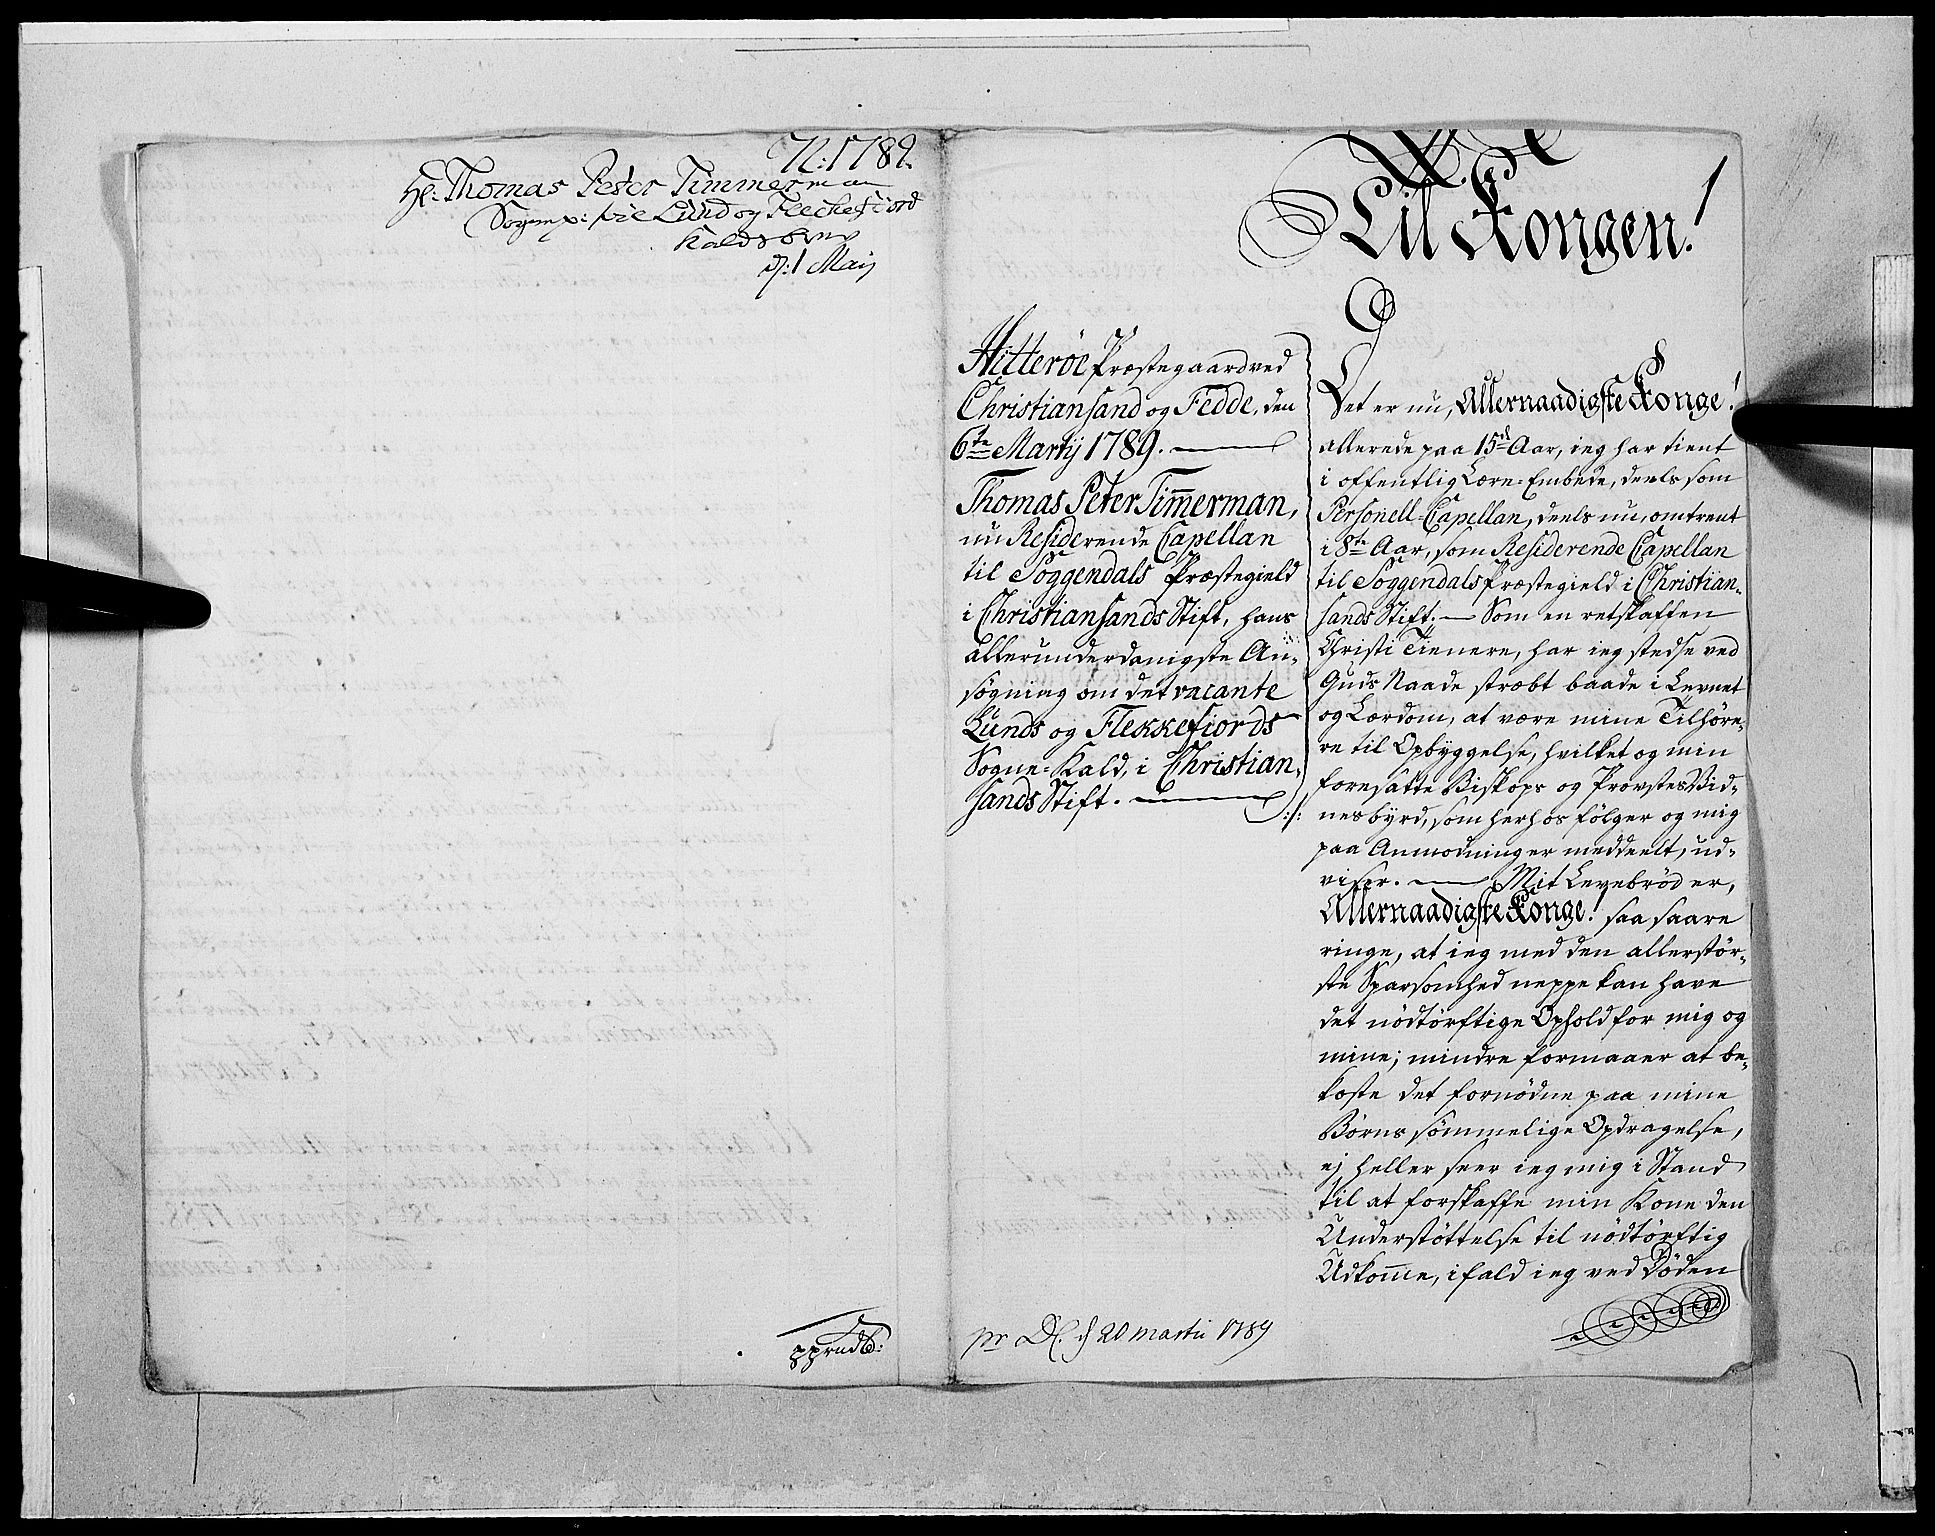 N: 1789.
Hr: Thomas Peter Timmerman
Sognep: for Lund og Fleckefiord
Kaldsbrev
d: 1 Maij
Til Kongen!
Hitteröe Præstegaard ved
Christiansand og Fedde, den
6te Martij 1789.
Thomas Peter Tim̅erman,
nu Residerende Capellan
til Soggendals Præstegield
i Christiansands Stift, hans
allerunderdanigste An-
søgning om det vacante
Lunds og Flekkefiords
Sogne-Kald, i Christian-
sands Stift.
Det er nu, Allernaadigste Konge!
allerede paa 15de Aar, ieg har tient
i offentlig Lære-Embede, deels som
Personell-Capellan, deels nu, omtrent
i 8te Aar, som Residerende Capellan
til Soggendals Præstegield i Christian-
sands Stift. Som en retskaffen
Christi Tienere, har ieg stedse ved
Guds Naade stræbt baade i Levnet
og Lærdom, at være mine Tilhöre-
re til Opbyggelse, hvilket og min
foresatte Biskops og Provstes Vid-
nesbyrd, som herhos fölger og mig
paa Anmodninger meddeelt, ud-
viser. Mit Levebröd er,
Allernaadigste Konge! saa saare
ringe, at ieg med den allerstör-
ste Sparsomhed neppe kan have
det nödtörftige Ophold for mig og
mine; mindre formaaer at be-
koste det fornödne paa mine
Börns sömmelige Opdragelse,
ej heller seer ieg mig i Stand
til at forskaffe min Kone den
Understöttelse til nödtörftig
Udkom̅e, ifald ieg ved Döden
pr D. d 20 martii 1789